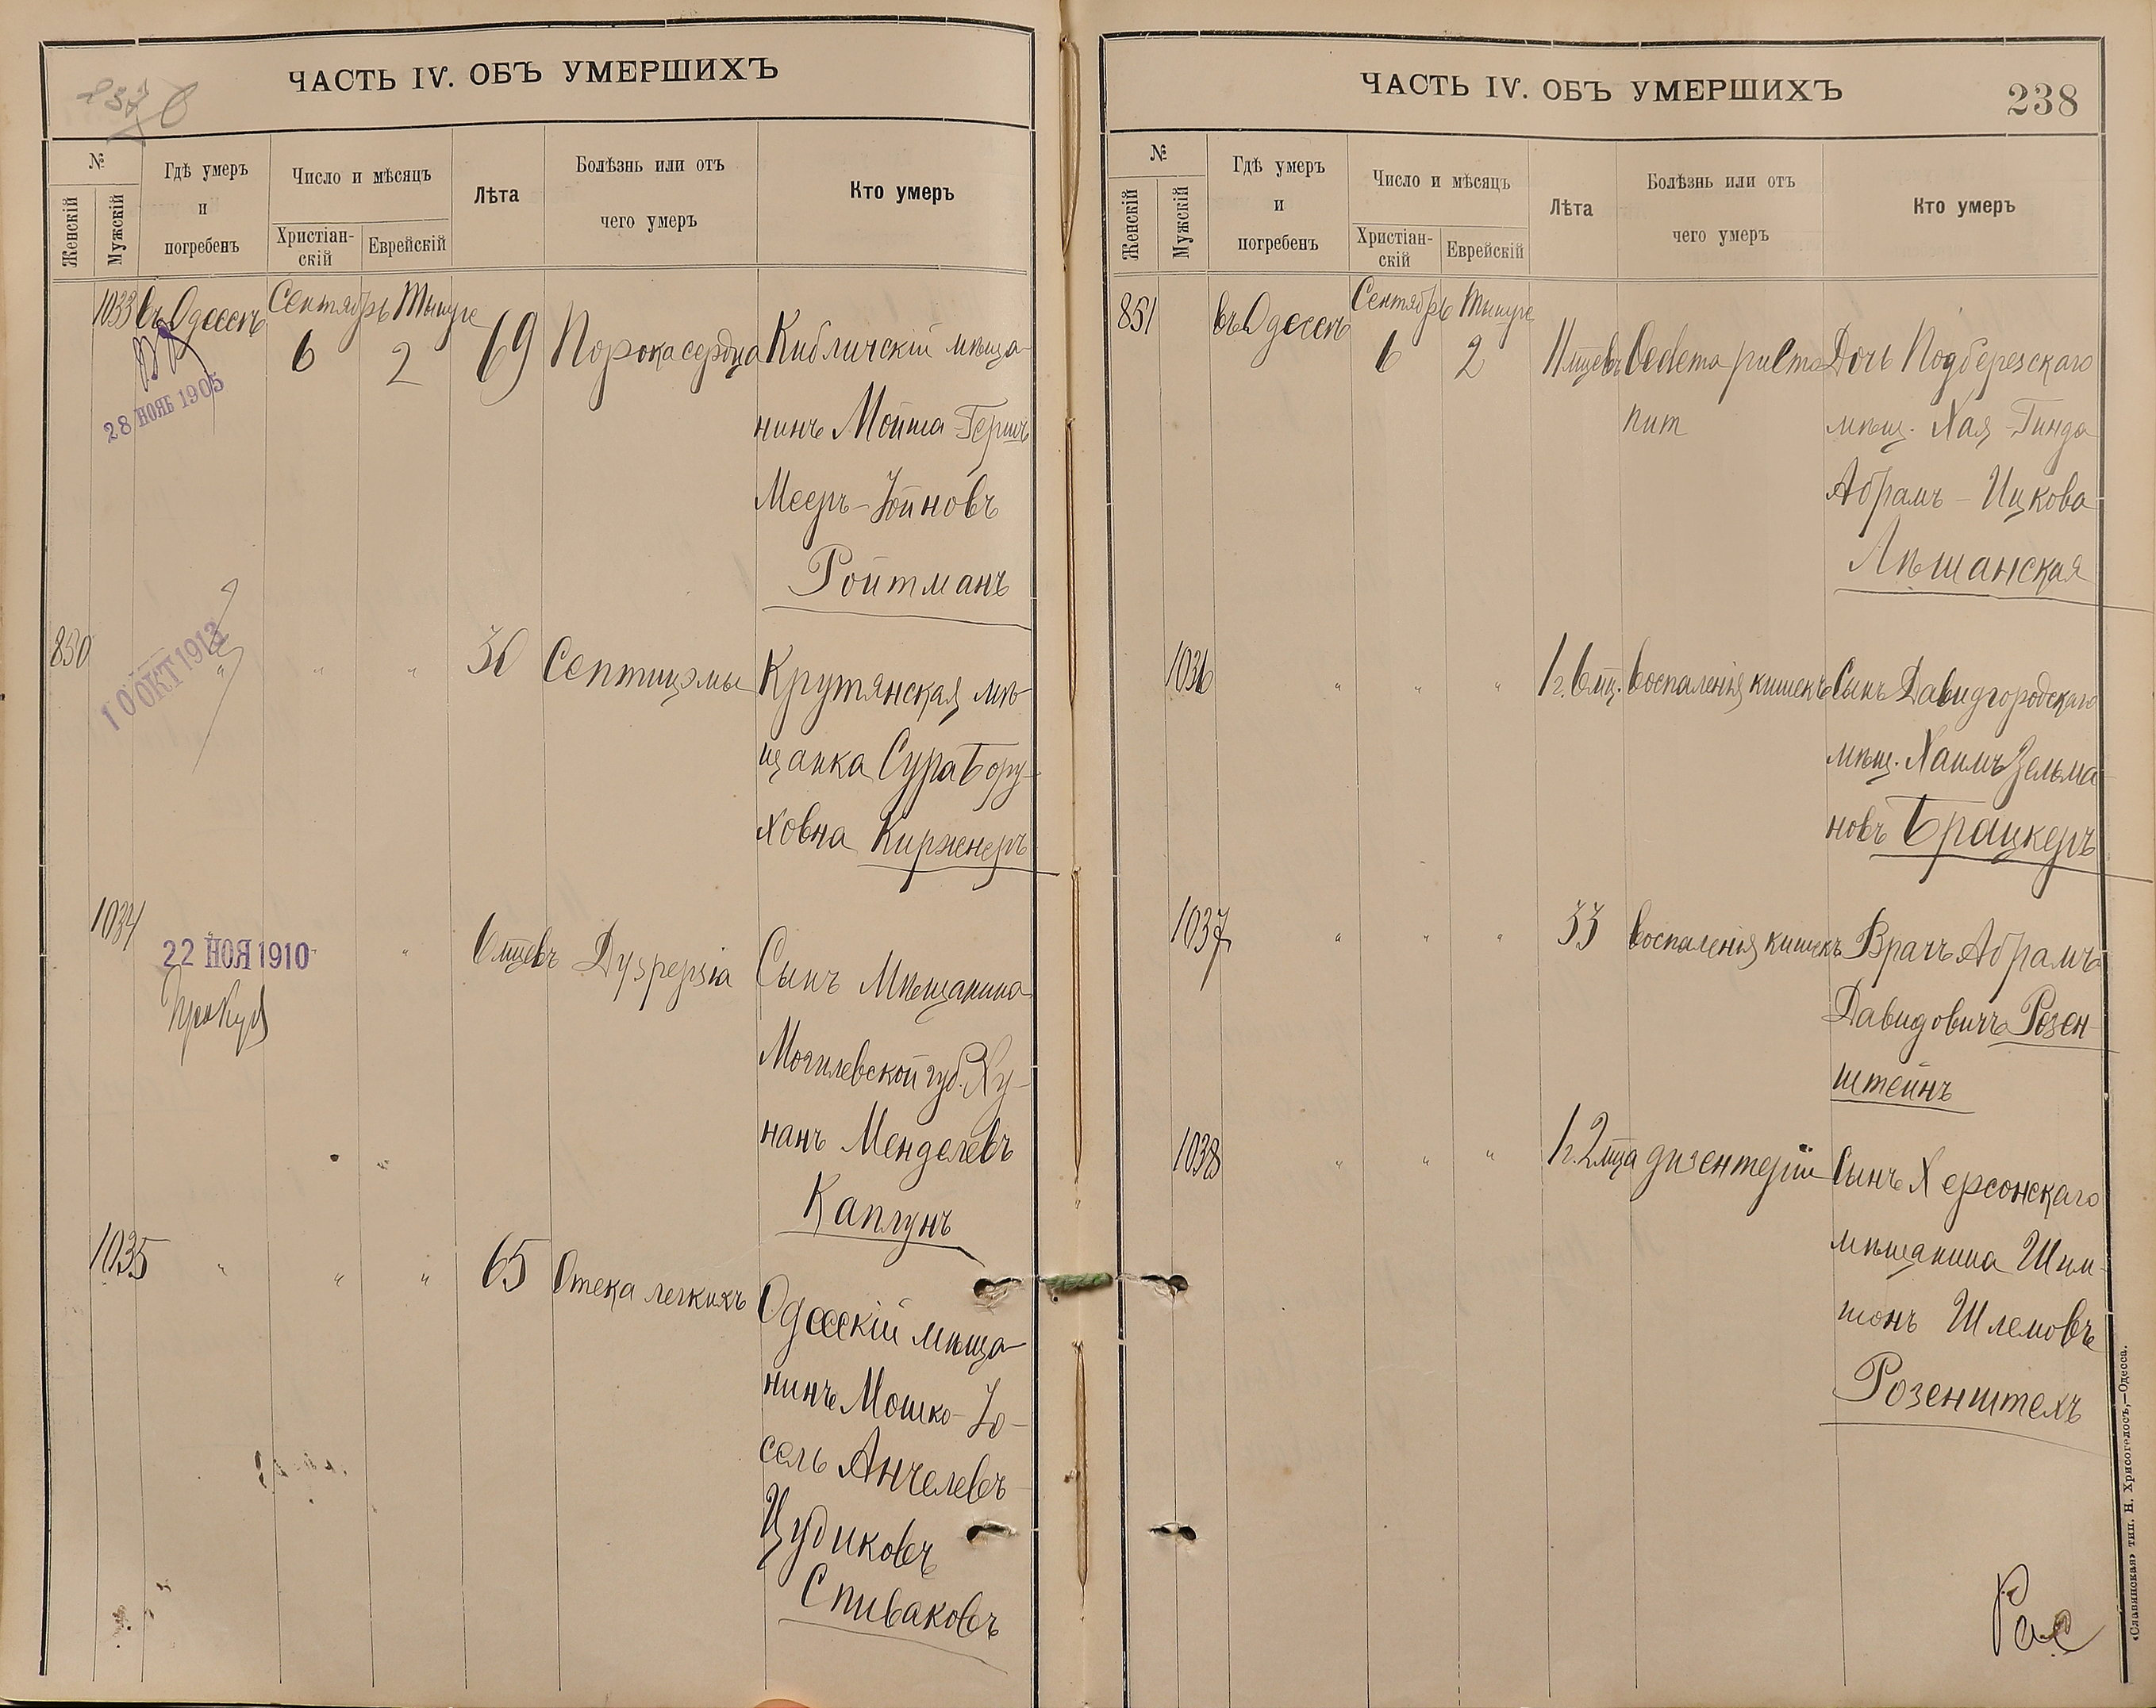 ЧАСТЬ IV. ОБЪ УМЕРШИХЪ
№
Женскій
Мужскій
Гдѣ умеръ
и
погребенъ
Число и мѣсяцъ
Христіан-
скій
Еврейскій
Лѣта
Болѣзнь или отъ
чего умеръ
Кто умеръ
1033 въ Одессѣ Сентябрь Тишре
6 2 69 Порока сердца Кибличскій мѣща-
нинъ Мойша-Гершъ
Мееръ-Іойновъ
Ройтманъ
28 НОЯБ 1905
850 " " " 30 Септицэмы Крутянская мѣ-
щанка Сура Бору-
ховна Киржнеръ
10 ОКТ 1912
1034 " " 6 мцевъ Dyspepsia Сынъ Мѣщанина
Могилевской губ. Ху-
нанъ Менделевъ
Каплунъ
22 НОЯ 1910
1035 " " " 65 Отека легкихъ Одесскій мѣща-
нинъ Мошко-Іо-
сель Анчелевъ
Цудиковъ
Спиваковъ
ЧАСТЬ IV. ОБЪ УМЕРШИХЪ
238
№
Женскій
Мужскій
Гдѣ умеръ
и
погребенъ
Число и мѣсяцъ
Христіан-
скій
Еврейскій
Лѣта
Болѣзнь или отъ
чего умеръ
Кто умеръ
851 въ Одессѣ Сентябрь Тишре
6 2 11 мцевъ Oedema pulmo Дочь Подберезскаго
num мѣщ. Хая-Гинда
Абрамъ-Ицкова
Лѣшанская
1036 " " " 1 г. 6 мц. воспаленія кишекъ Сынъ Давидгородскаго
мѣщ. Хаимъ Зельма-
новъ Брацкеръ
1037 " " " 33 воспаленія кишекъ Врачъ Абрамъ
Давидовичъ Розен-
штейнъ
1038 " " " 1 г. 2 мца дизентеріи Сынъ Херсонскаго
мѣщанина Шим-
шонъ Шлемовъ
Розенштехъ
«Славянская» тип. Н. Хрисогелосъ,—Одесса.